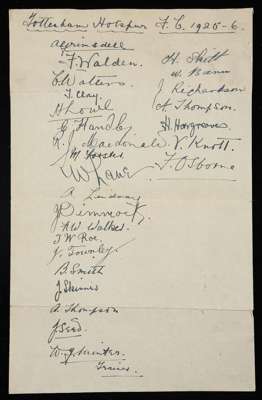 Tottenham Hotspur F.C. 1925-6.
A Grimsdell
F. Walden.
C. Walters
T. Clay
H Lowe
G Handley
R. J Macdonald
J M Forster
A Lindsay
J Dimmock.
R W Walker.
T W Roe.
J. Townley
B. Smith
J Skinner
A Thompson
J. Seed
W. J. Minter.
Trainer.
H. Skitt
W Bann
J Richardson
A Thompson.
H. Hargreaves
V. Knott.
F. Osborne